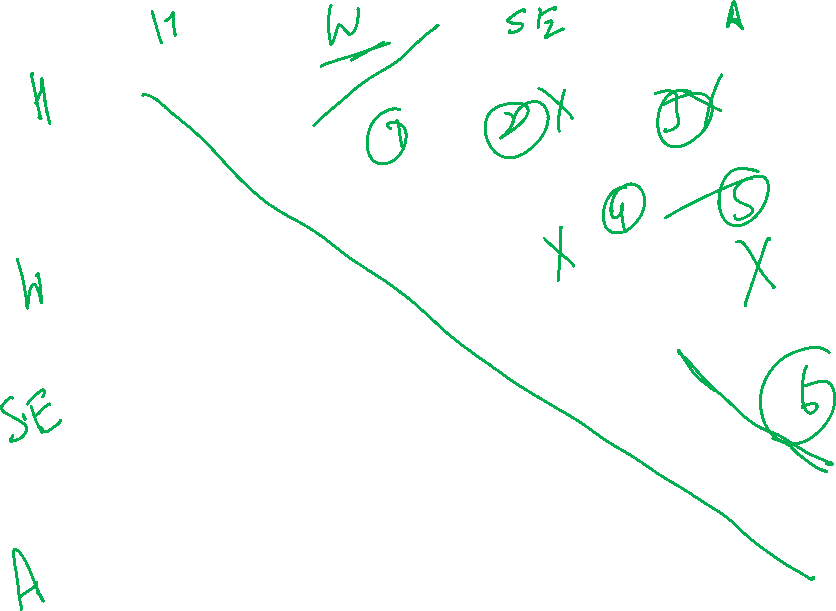 H W SE A
H 1 2 X 3 X
4 5
W X X
SE 6
A